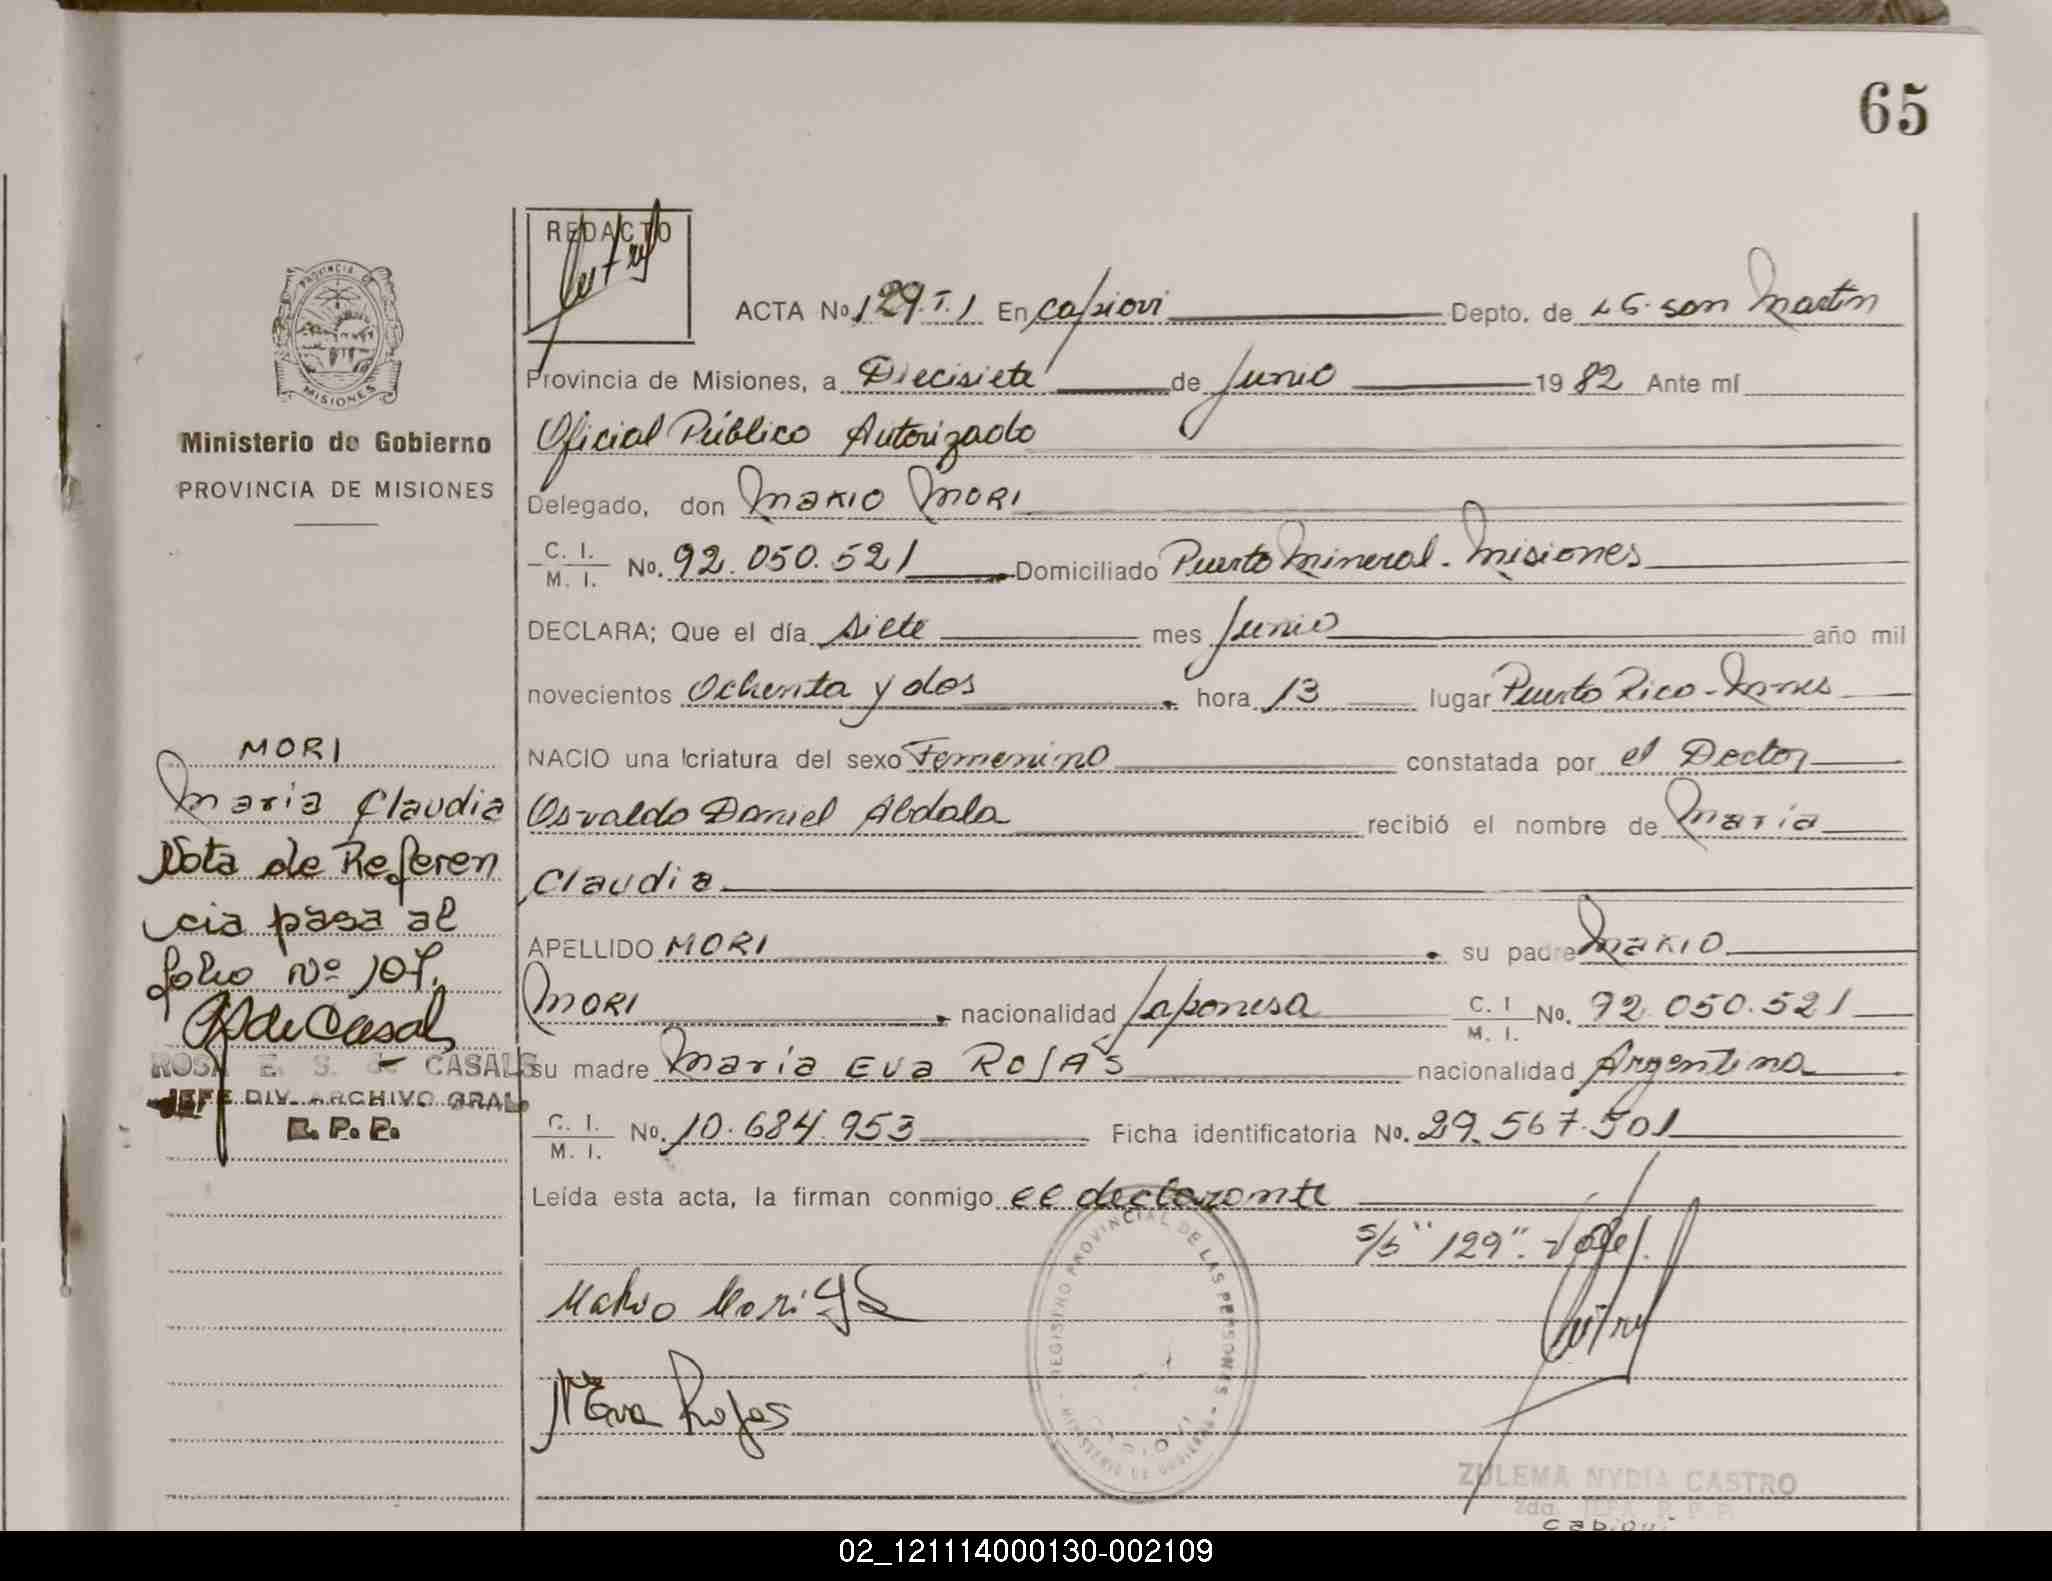 65
REDACTO
PROVINCIA DE
MISIONES
Ministerio de Gobierno
PROVINCIA DE MISIONES
ACTA No 129.T.1 En Capiovi Depto. de LG. San Martin
Provincia de Misiones, a Diecisiete de Junio 1982 Ante mí
Oficial Público Autorizado
Delegado, don Makio Mori
C. I. / M. I. No. 92.050.521 Domiciliado Puerto Mineral - Misiones
DECLARA; Que el día siete mes Junio año mil
novecientos Ochenta y dos hora 13 lugar Puerto Rico - Mnes
NACIO una criatura del sexo Femenino constatada por el Doctor
Osvaldo Daniel Abdala recibió el nombre de María
Claudia
APELLIDO MORI su padre Makio
Mori nacionalidad Japonesa C. I. / M. I. No. 92.050.521
su madre María Eva ROJAS nacionalidad Argentina
C. I. / M. I. No. 10.684.953 Ficha identificatoria No. 29.567.501
Leída esta acta, la firman conmigo el declarante
s/b "129". Vale.
Makio Mori
M Eva Rojas
MORI
María Claudia
Nota de Referen
cia pasa al
folio Nº 107.
R de Casals
ROSA E. S. de CASALS
JEFE DIV. ARCHIVO GRAL.
R. P. P.
REGISTRO PROVINCIAL DE LAS PERSONAS - MINISTERIO DE GOBIERNO -
CAPIOVI
ZULEMA NYDIA CASTRO
2da. JEFA R. P. P.
Capiovi
02_121114000130-002109